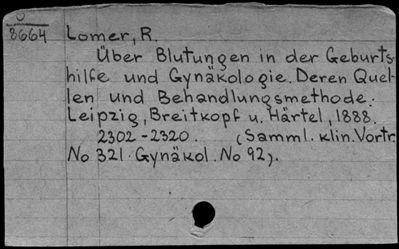 O
8664
Lomer, R.
Über Blutungen in der Geburts-
hilfe und Gynäkologie. Deren Quel-
len und Behandlungsmethode.
Leipzig, Breitkopf u. Härtel, 1888.
2302-2320. (Samml. klin. Vortr.
No 321. Gynäkol. No 92).